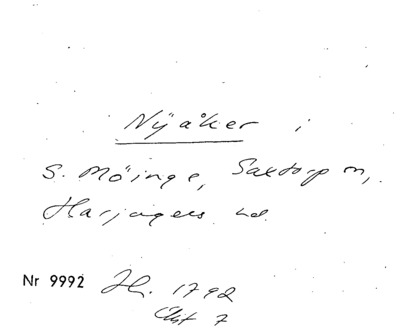 Nyåker i
S. Möinge, Saxtorp sn,
Harjagers hd.
Nr 9992 Hh. 1792
Akt 7